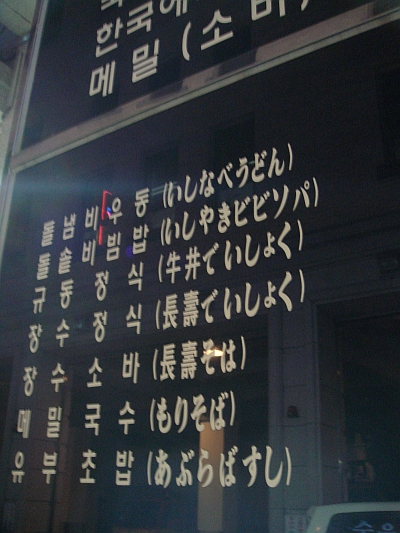 한국에
메밀(소바)
돌냄비우동(いしなべうどん)
돌솥비빔밥(いしやきビビソパ)
규동정식(牛井でいしょく)
장수정식(長壽でいしょく)
장수소바(長壽そは)
메밀국수(もりそば)
유부초밥(あぶらばすし)